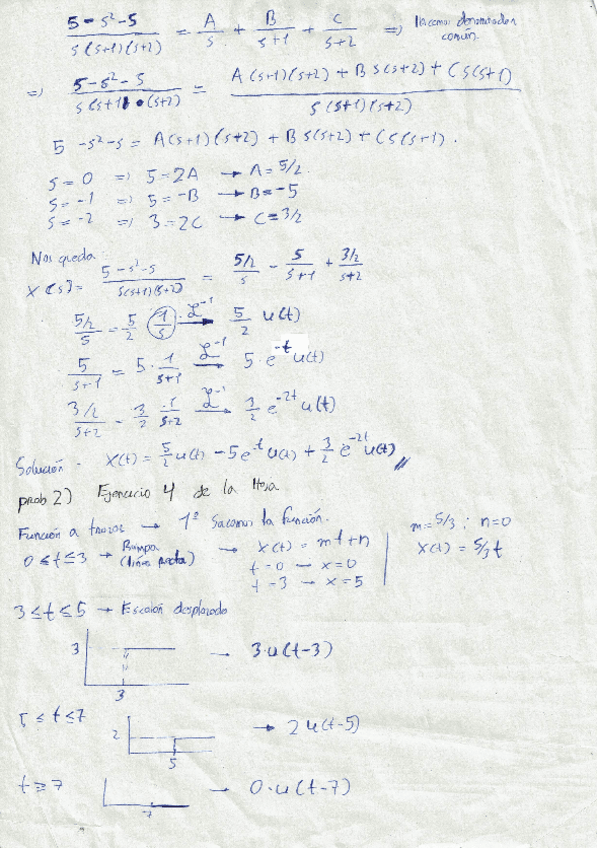 5 - s² - s / s(s+1)(s+2) = A/s + B/s+1 + C/s+2 ⇒ Hacemos denominador común.
⇒ 5 - s² - s / s(s+1)·(s+2) = A(s+1)(s+2) + B s(s+2) + C s(s+1) / s(s+1)(s+2)
5 - s² - s = A(s+1)(s+2) + B s(s+2) + C s(s+1).
s = 0 ⇒ 5 = 2A → A = 5/2.
s = -1 ⇒ 5 = -B → B = -5
s = -2 ⇒ 3 = 2C → C = 3/2
Nos queda:
X(s) = 5 - s² - s / s(s+1)(s+2) = 5/2/s - 5/s+1 + 3/2/s+2
5/2/s = 5/2 · 1/s L⁻¹→ 5/2 u(t)
5/s+1 = 5 · 1/s+1 L⁻¹→ 5·e^-t u(t)
3/2/s+2 = 3/2 · 1/s+2 L⁻¹→ 3/2 e^-2t u(t)
Solución. x(t) = 5/2 u(t) - 5e^-t u(t) + 3/2 e^-2t u(t) //
prob 2) Ejercicio 4 de la Hoja
Función a trozos → 1º Sacamos la función.
0 ≤ t ≤ 3 → Rampa (línea recta) → x(t) = mt + n
t = 0 → x = 0
t = 3 → x = 5
m = 5/3 ; n = 0
x(t) = 5/3 t
3 ≤ t ≤ 5 → Escalón desplazado
3
3
→ 3·u(t-3)
5 ≤ t ≤ 7
2
5
→ 2 u(t-5)
t ≥ 7
7
→ 0·u(t-7)